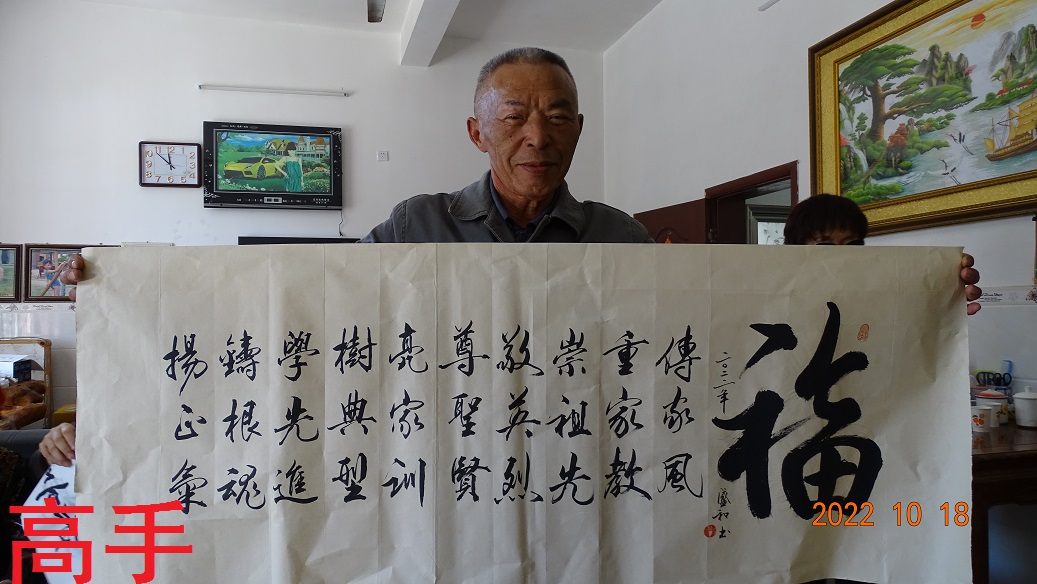 福
二〇二二年
傳家風
重家教
崇祖先
敬英烈
尊聖賢
亮家訓
樹典型
學先進
鑄根魂
揚正氣
盛和書
2022 10 18
高手